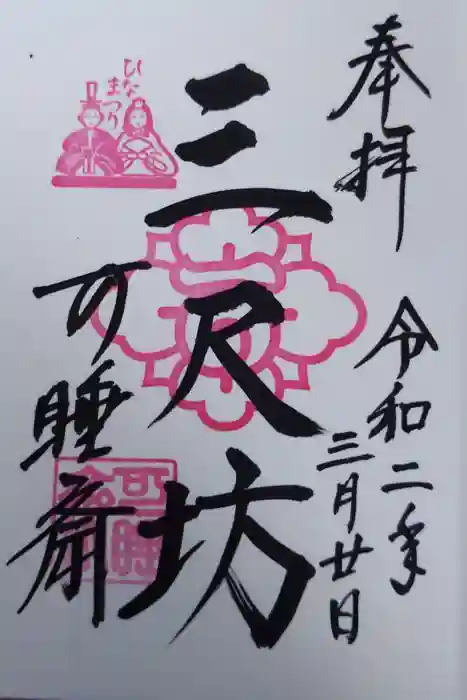 奉拝
令和二年
三月廿日
三尺坊
可睡斎
ひな
まつり